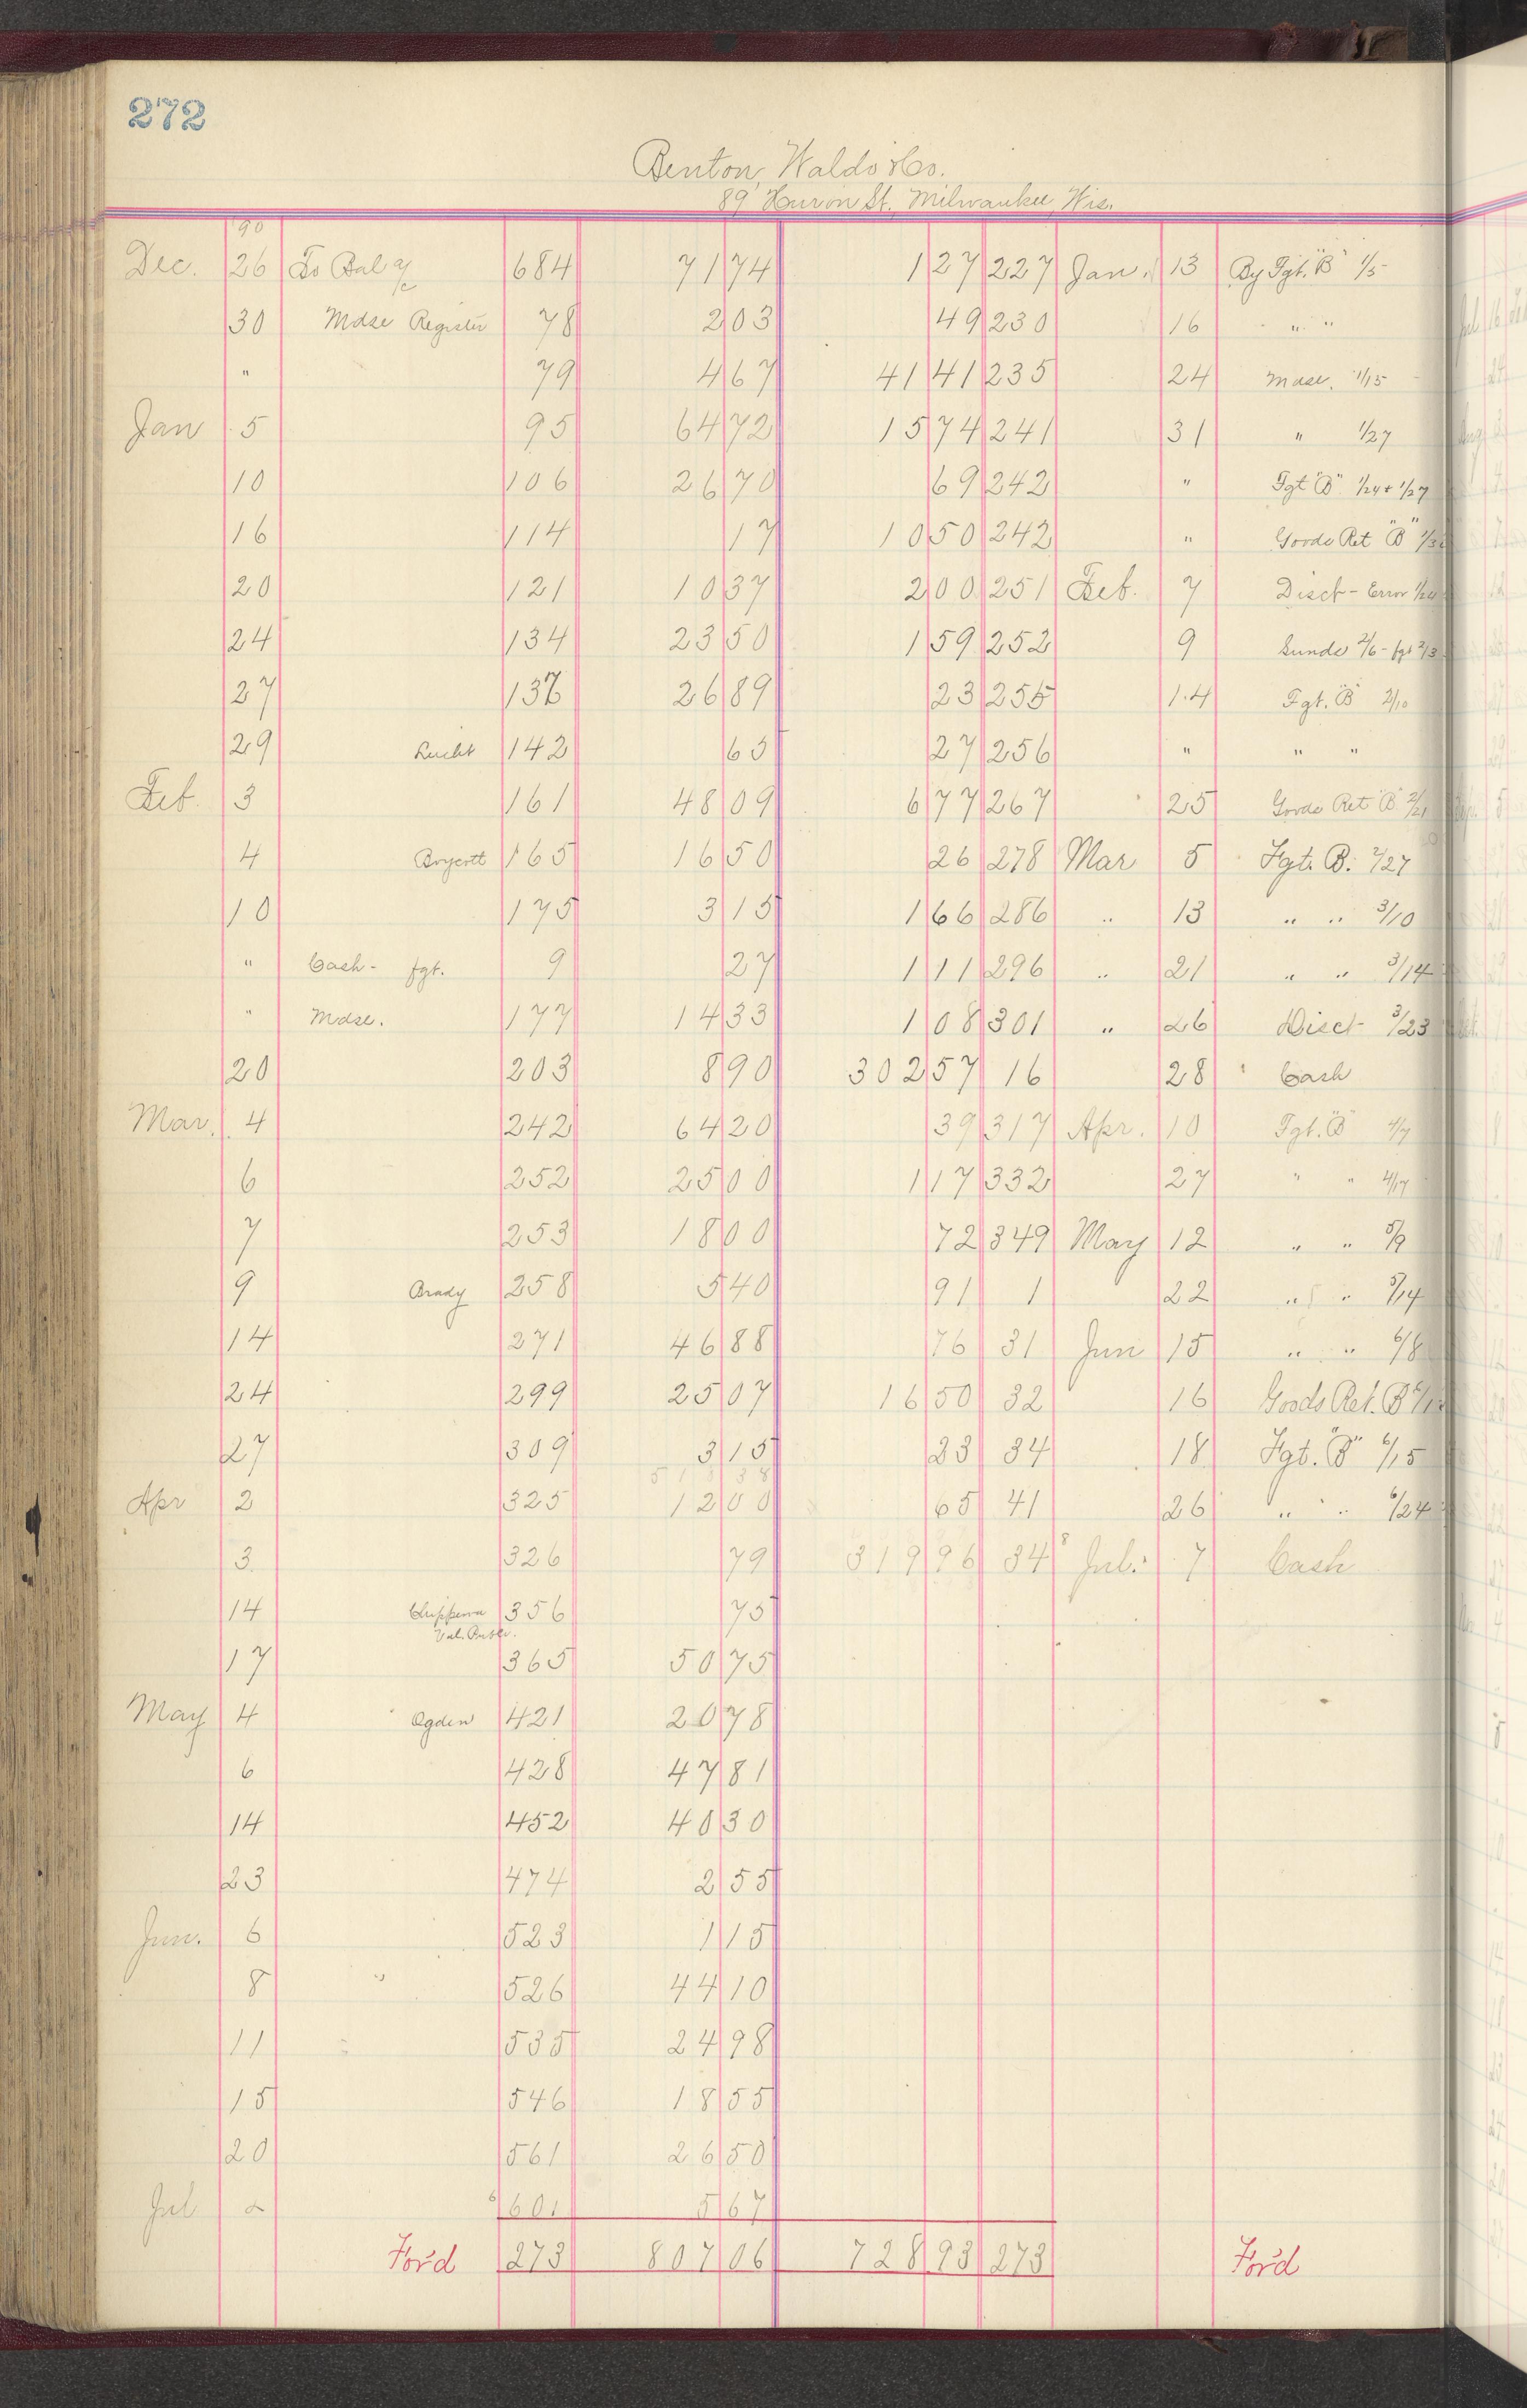 272
Benton, Waldo & Co.
89 Huron St., Milwaukee, Wis.
90
Dec. 26 To Bal a/c 684 71 74 1 27 227 Jan. 13 By Fgt. "B" 1/5
30 Mdse Register 78 2 03 49 230 16 " "
" 79 4 67 41 41 235 24 Mdse. 1/15
Jan 5 95 64 72 15 74 241 31 " 1/27
10 106 26 70 69 242 " Fgt "B" 1/24 + 1/27
16 114 17 10 50 242 " Goods Ret "B"
20 121 10 37 2 00 251 Feb. 7 Disct - Error
24 134 23 50 1 59 252 9 Sunds 2/6 - fgt 2/3
27 137 26 89 23 255 14 Fgt. "B" 2/10
29 142 65 27 256 " " "
Feb. 3 161 48 09 6 77 267 25 Goods Ret "B" 2/21
4 Boycott 165 16 50 26 278 Mar 5 Fgt. B. 2/27
10 175 3 15 1 66 286 " 13 " " 3/10
" Cash - fgt. 9 27 1 11 296 " 21 " " 3/14
" Mdse. 177 14 33 1 08 301 " 26 Disct 3/23
20 203 8 90 302 57 16 28 Cash
Mar. 4 242 64 20 39 317 Apr. 10 Fgt. "B" 4/7
6 252 25 00 1 17 332 27 " " 4/17
7 253 18 00 72 349 May 12 " " 5/9
9 Brady 258 5 40 91 1 22 " " 5/14
14 271 46 88 76 31 Jun 15 " " 6/8
24 299 25 07 16 50 32 16 Goods Ret. B
27 309 3 15 23 34 18 Fgt. "B" 6/15
513 38
Apr 2 325 12 00 65 41 26 " " 6/24
3 326 79 319 96 34 8 Jul. 7 Cash
14 Chippewa 356 75
Val.
17 365 50 75
May 4 Ogden 421 20 78
6 428 47 81
14 452 40 30
23 474 2 55
Jun. 6 523 1 15
8 " 526 44 10
11 " 535 24 98
15 546 18 55
20 561 26 50
Jul 2 6 601 5 67
For'd 273 807 06 728 93 273 For'd